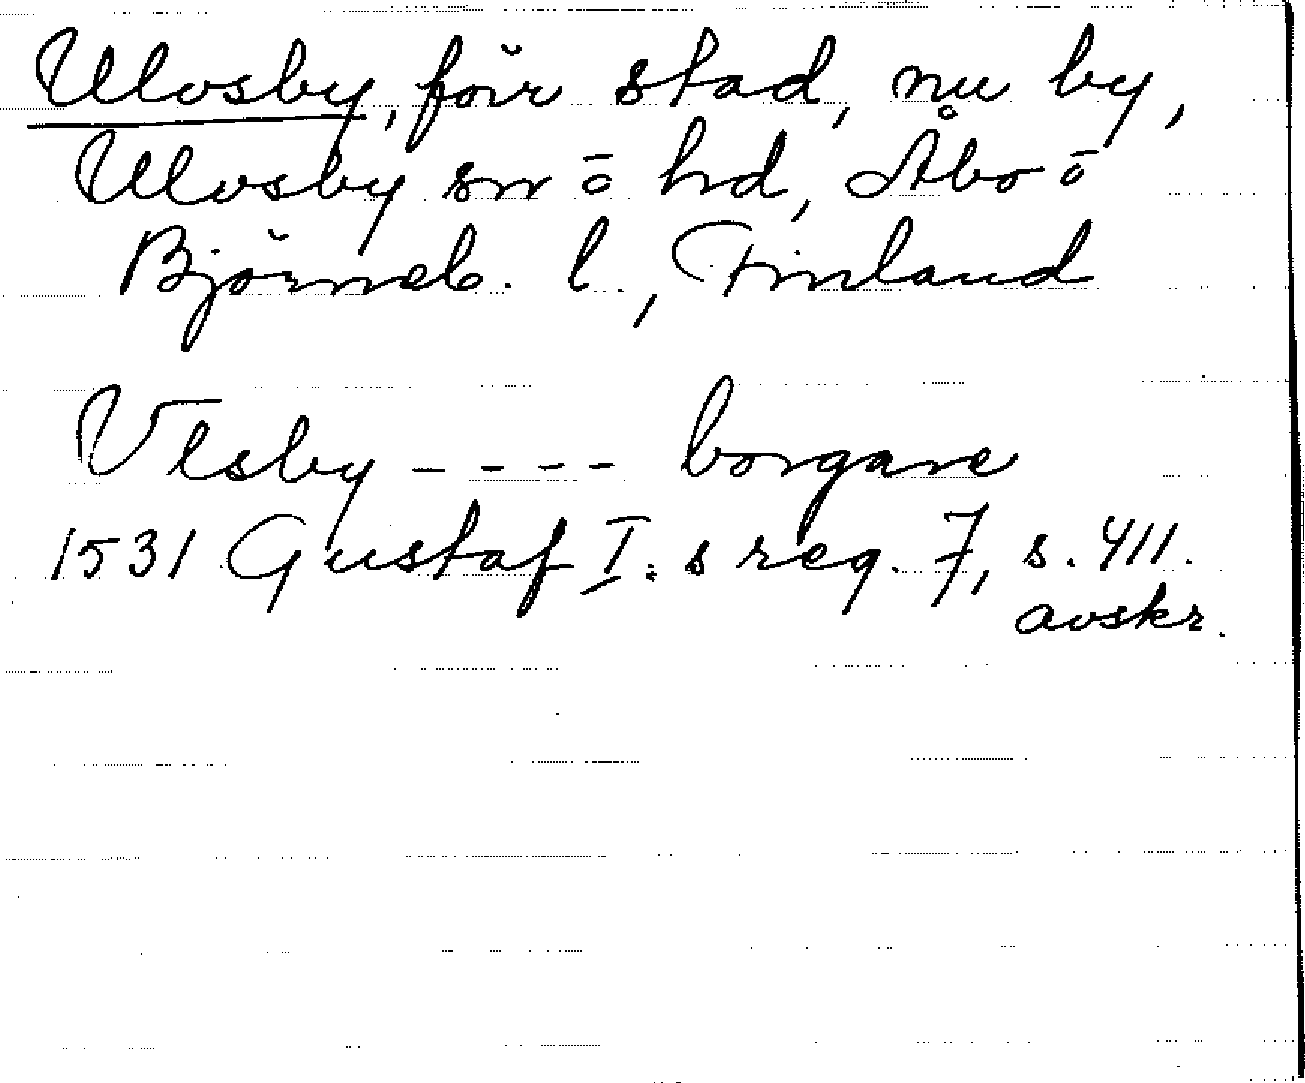 Ulvsby, förr stad, nu by,
Ulvsby sn o hd, Åbo o
Björneb. l., Finland
Vlsby ---- borgare
1531 Gustaf I:s reg. 7, s. 411.
avskr.